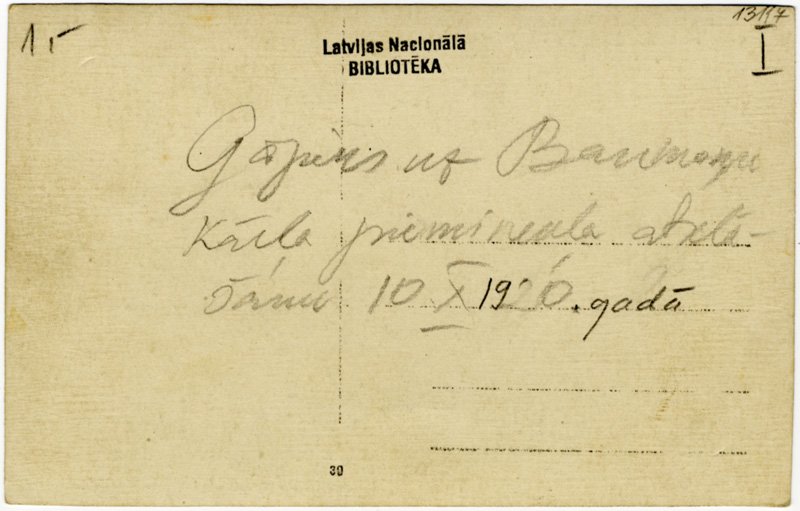 1317
I
1
Latvijas Nacionālā
BIBLIOTĒKA
Gājiens uz Baumaņu
Kārļa pieminekļa atklā-
šanu 10 X 1920. gadā
30